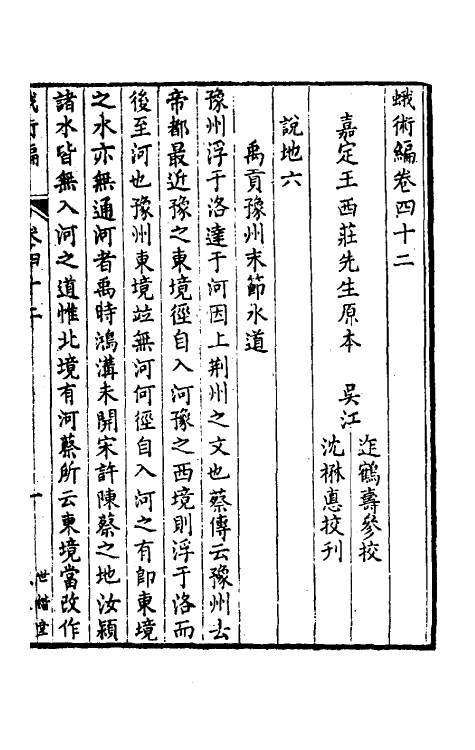 蛾術編卷四十二
嘉定王西莊先生原本 吳江
迮鶴壽參校
沈楙悳挍刊
說地六
禹貢豫州末節水道
豫州浮于洛達于河因上荆州之文也蔡傳云豫州去
帝都最近豫之東境徑自入河豫之西境則浮于洛而
後至河也豫州東境竝無河何徑自入河之有卽東境
之水亦無通河者禹時鴻溝未開宋許陳蔡之地汝潁
諸水皆無入河之道惟北境有河蔡所云東境當改作
蛾術編
卷四十二
一
世楷堂